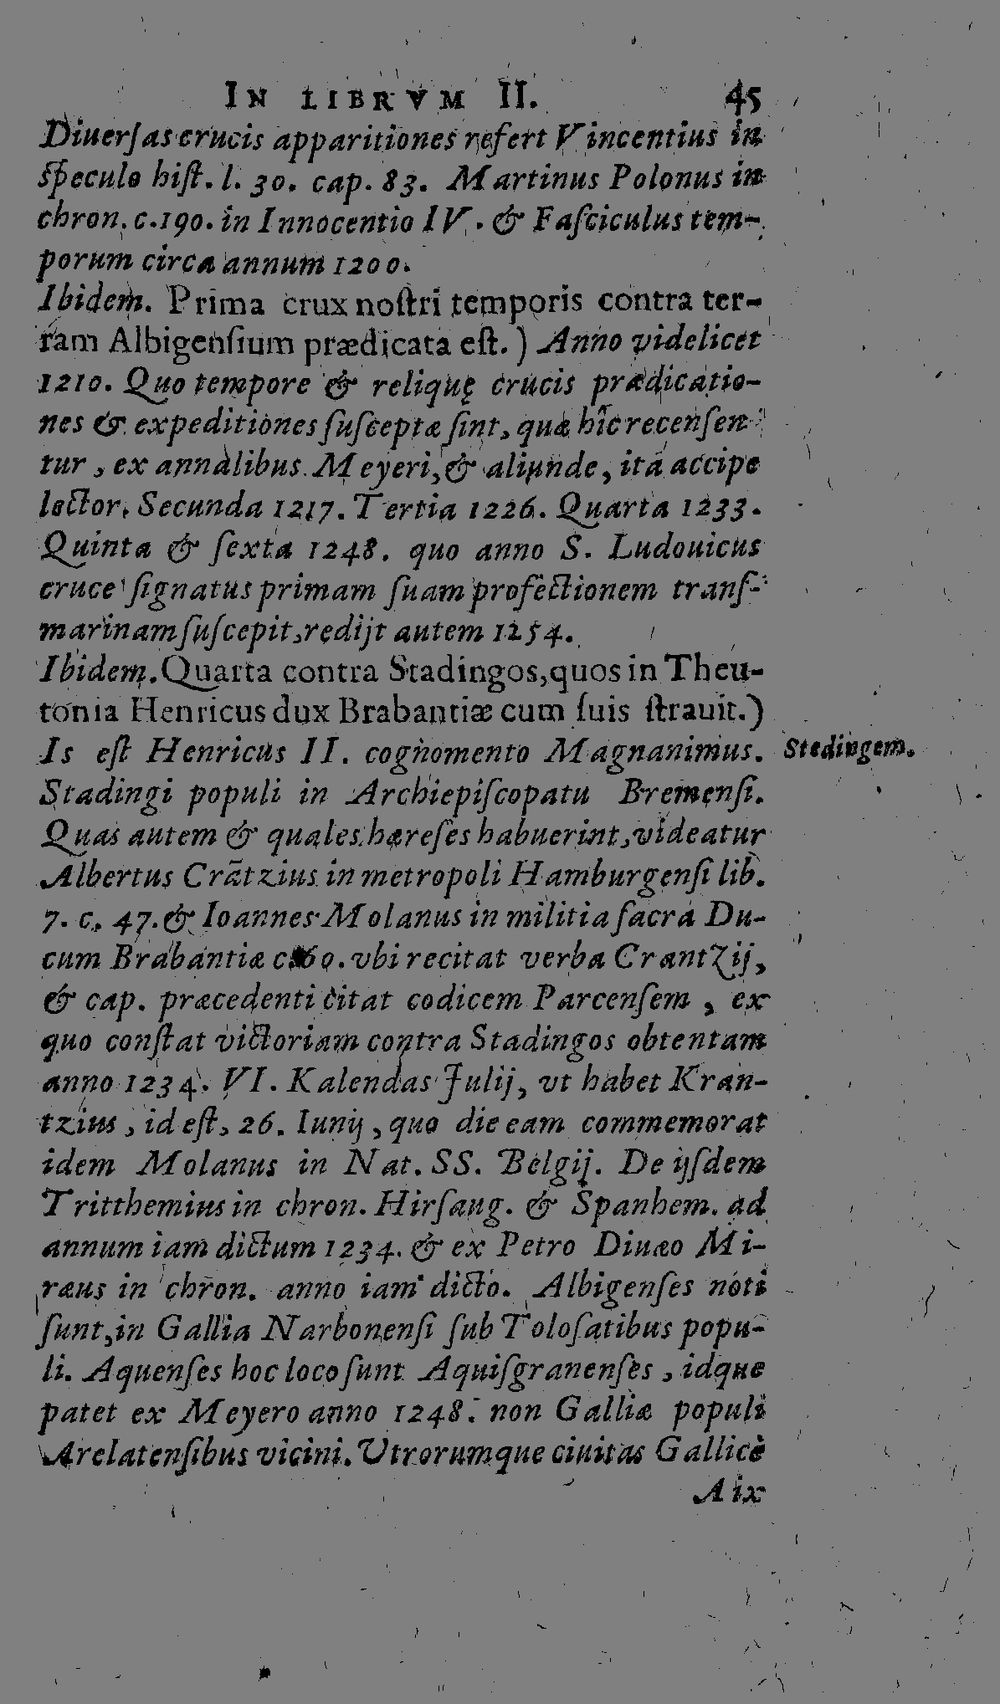 IN LIBRVM II. 45
Diuerſas crucis apparitiones refert Vincentius in
ſpeculo hiſt. l. 30. cap. 83. Martinus Polonus in
chron. c.190. in Innocentio IV. & Faſciculus tem-
porum circa annum 1200.
Ibidem. Prima crux noſtri temporis contra ter-
ram Albigenſium prædicata eſt.) Anno videlicet
1210. Quo tempore & reliquę crucis prædicatio-
nes & expeditiones ſuſceptæ ſint, quæ hîc recenſen-
tur, ex annalibus Meyeri, & aliunde, ita accipe
lector. Secunda 1217. Tertia 1226. Quarta 1233.
Quinta & ſexta 1248. quo anno S. Ludouicus
cruce ſignatus primam ſuam profectionem tranſ-
marinam ſuſcepit, redijt autem 1254.
Ibidem. Quarta contra Stadingos, quos in Theu-
tonia Henricus dux Brabantiæ cum ſuis ſtrauit.)
Is eſt Henricus II. cognomento Magnanimus.
Stedingem.
Stadingi populi in Archiepiſcopatu Bremenſi.
Quas autem & quales hæreſes habuerint, videatur
Albertus Crātzius in metropoli Hamburgenſi lib.
7. c. 47. & Ioannes Molanus in militia ſacra Du-
cum Brabantiæ c. 60. vbi recitat verba Crantzij,
& cap. præcedenti citat codicem Parcenſem, ex
quo conſtat victoriam contra Stadingos obtentam
anno 1234. VI. Kalendas Julij, vt habet Kran-
tzius, id eſt, 26. Iunij, quo die eam commemorat
idem Molanus in Nat. SS. Belgij. De ijſdem
Tritthemius in chron. Hirſaug. & Spanhem. ad
annum iam dictum 1234. & ex Petro Diuæo Mi-
ræus in chron. anno iam dicto. Albigenſes noti
ſunt, in Gallia Narbonenſi ſub Toloſatibus popu-
li. Aquenſes hoc loco ſunt Aquiſgranenſes, idque
patet ex Meyero anno 1248. non Galliæ populi
Arelatenſibus vicini. Utrorumque ciuitas Gallicè
Aix